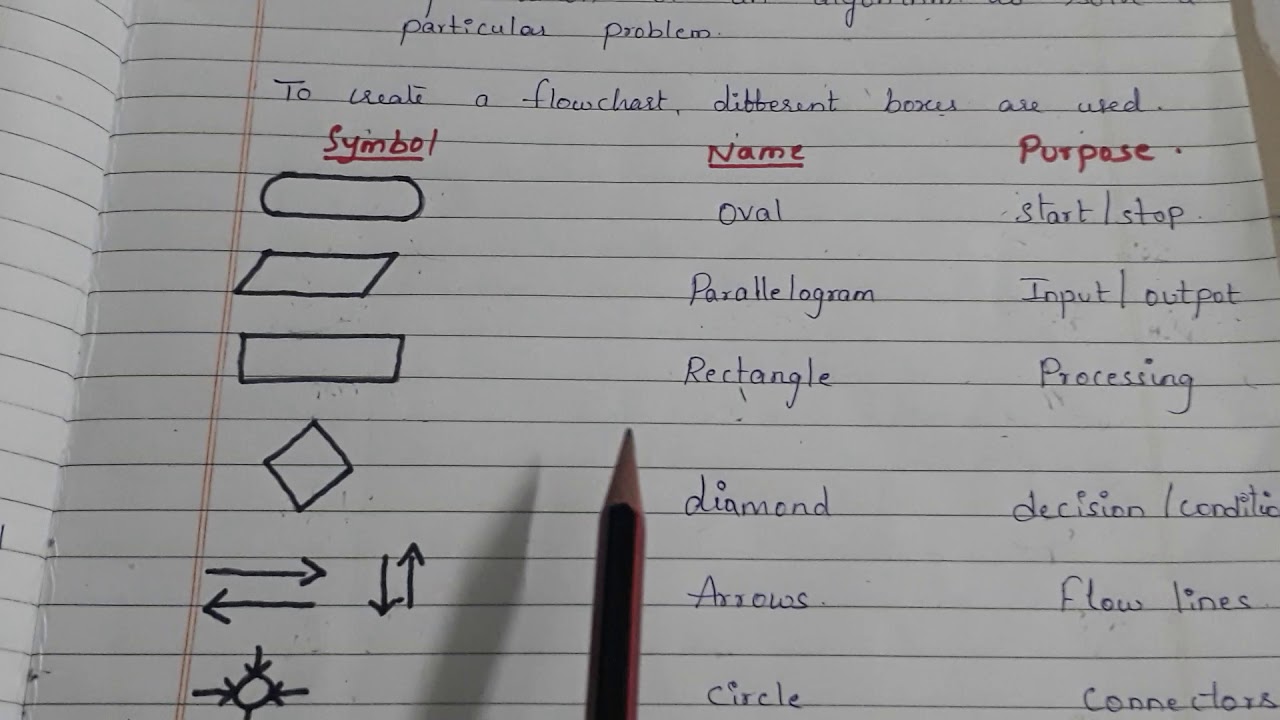 algorithm to solve a
particular problem.
To create a flowchart, different boxes are used.
Symbol Name Purpose.
Oval start/stop.
Parallelogram Input/output
Rectangle Processing
diamond decision/conditio
Arrows. Flow lines.
Circle Connectors